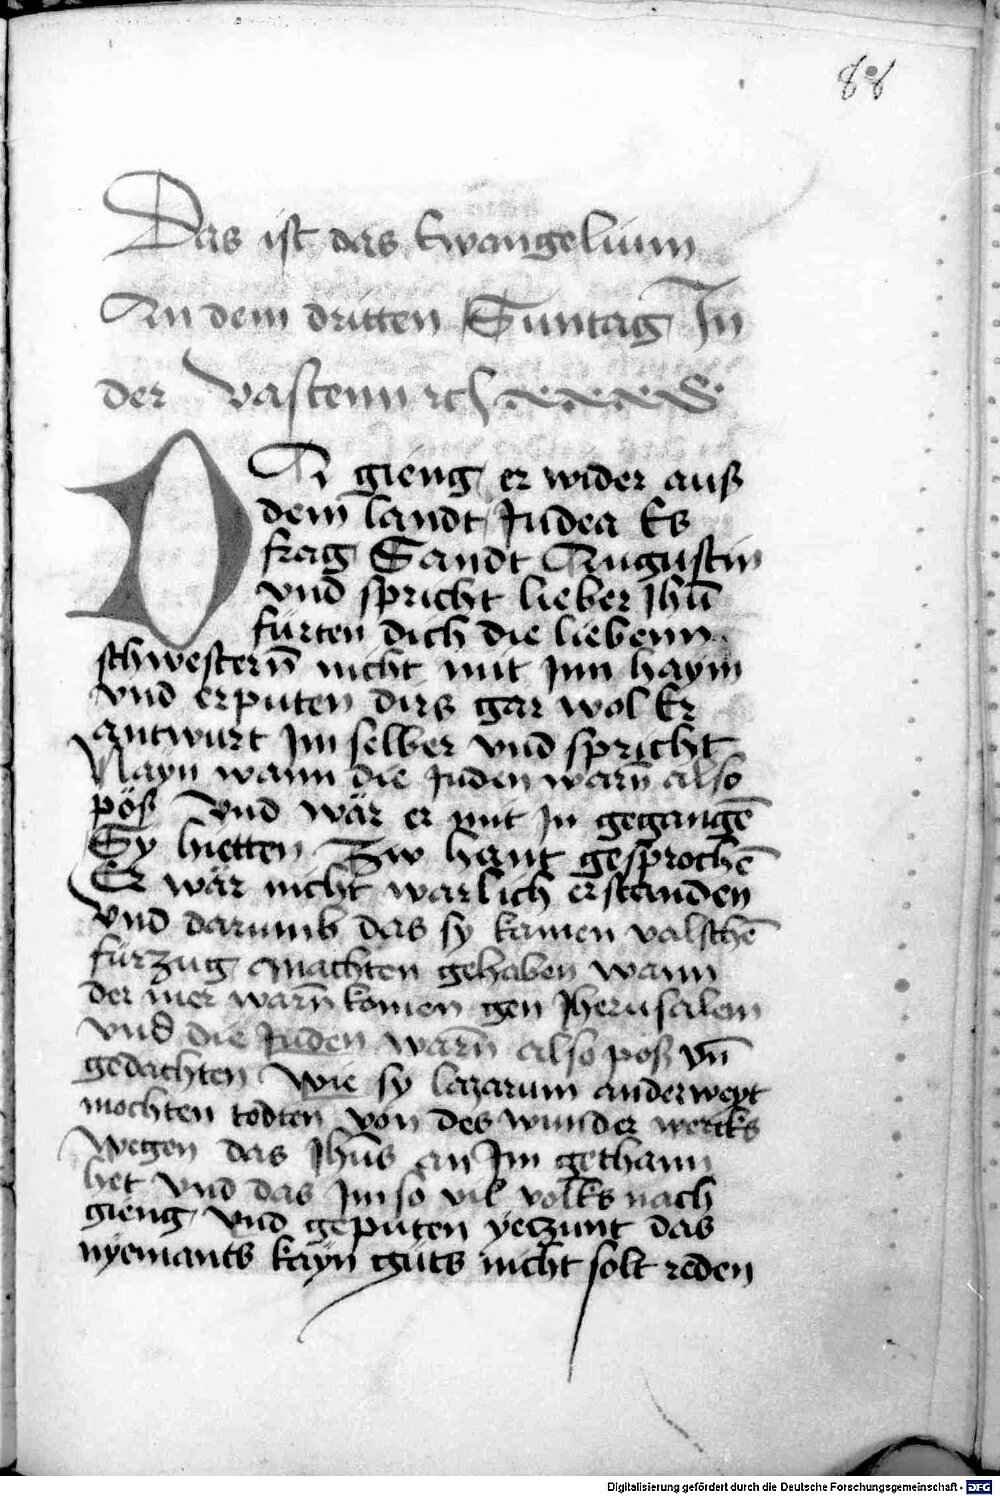 88
Das ist das Ewangelium
An dem dritten Suntag In
der vastenn rch
DA gieng er wider auß
dem landt Judea Es
frag Sandt Augustin
vnd spricht lieber Jhū
fürten dich die liebenn
schwesterñ nicht mit Jnn haym
vnd erputen dirs gar wol Er
antwurt Jm selber vnd spricht
Nayn wann die Juden warñ also
pöß Vnd wär er mit Jn gegangē
Sy hietten Zw hant gesprochē
Er wär nicht warlich erstanden
vnd darumb das sy kamen valschē
fürzug machten gehaben wann
der mer warñ komen gen Jherusalem
vnd die Juden warñ also poß vñ
gedachten Wie sy lazarum anderweyt
mochten todten von des wunder wercks
wegen das Jhūs an Jm gethann
het Vnd das Jm so vil volks nach
gieng vnd geputen yeczunt das
nyemants kayn guts nicht solt reden
Digitalisierung gefördert durch die Deutsche Forschungsgemeinschaft - DFG